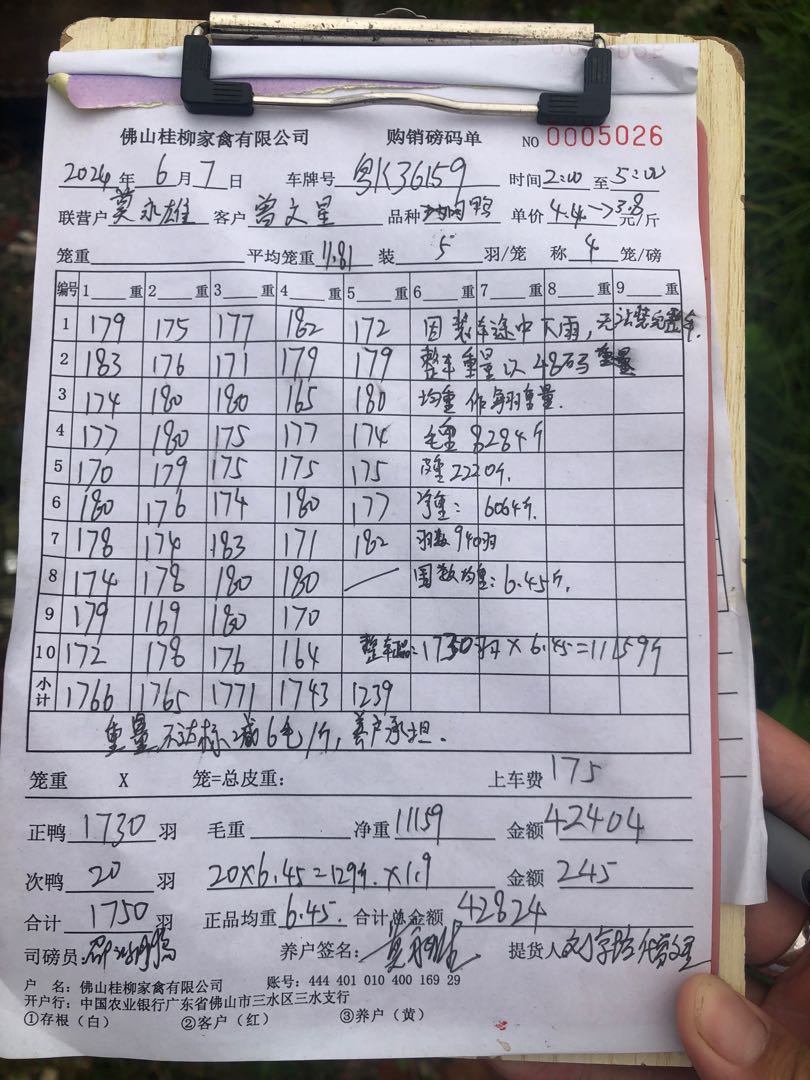 佛山桂柳家禽有限公司 购销磅码单 NO 0005026
2024年 6月 7日 车牌号 粤K36159 时间 2:00 至 5:00
联营户 莫永雄 客户 曾文星 品种 鸭 单价 4.4→3.8 元/斤
笼重 平均笼重 11.81 装 5 羽/笼 称 4 笼/磅
编号 1 重 2 重 3 重 4 重 5 重 6 重 7 重 8 重 9 重
1 179 175 177 182 172 因装车途中下雨,无法装完整车.
2 183 176 171 179 179 整车重量以48码重量
3 174 180 180 165 180 均重作每羽重量.
4 177 180 175 177 174 毛重8284斤
5 170 179 175 175 175 除重2220斤.
6 180 176 174 180 177 净重:6064斤.
7 178 174 183 171 182 羽数940羽
8 174 178 180 180 / 均重:6.45斤.
9 179 169 180 170
10 172 178 176 164 整车正品:1730羽×6.45=11159斤
小计 1766 1765 1771 1743 1239
重量不达标减6毛/斤,养户承担.
笼重 X 笼=总皮重: 上车费 175
正鸭 1730 羽 毛重 净重 11159 金额 42404
次鸭 20 羽 20×6.45=129斤.×1.9 金额 245
合计 1750 羽 正品均重 6.45. 合计总金额 42824
司磅员: 养户签名: 莫永雄 提货人
户 名:佛山桂柳家禽有限公司 账号:444 401 010 400 169 29
开户行:中国农业银行广东省佛山市三水区三水支行
①存根(白) ②客户(红) ③养户(黄)